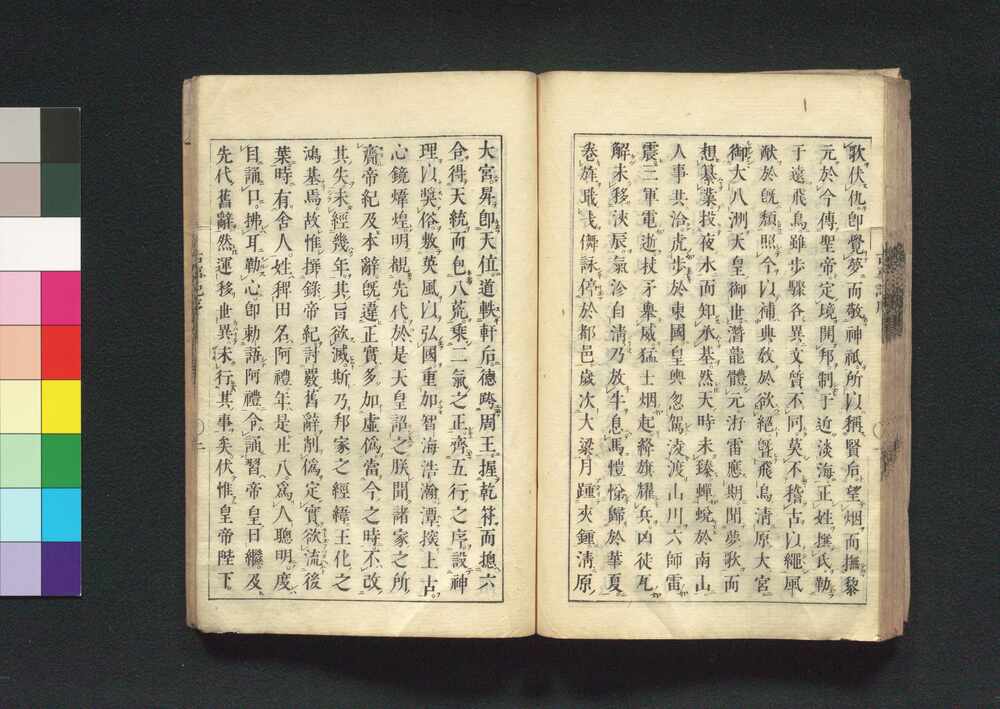 歌伏仇卽覺夢而敬神祇所以稱賢后望烟而撫黎
元於今傳聖帝定境開邦制于近淡海正姓撰氏勒
于遠飛鳥雖步驟各異文質不同莫不稽古以繩風
猷於旣頽照今以補典敎於欲絕曁飛鳥淸原大宮
御大八洲天皇御世潛龍體元洊雷應期聞夢歌而
想纂業投夜水而知承基然天時未臻蟬蛻於南山
人事共洽虎步於東國皇輿忽駕淩渡山川六師雷
震三軍電逝杖矛擧威猛士烟起絳旗耀兵凶徒瓦
解未移浹辰氣沴自淸乃放牛息馬愷悌歸於華夏
卷旌戢戈儛詠停於都邑歲次大梁月踵夾鍾淸原
大宮昇卽天位道軼軒后德跨周王握乾符而摠六
合得天統而包八荒乘二氣之正齊五行之序設神
理以奬俗敷英風以弘國重加智海浩瀚潭探上古
心鏡煒煌明覩先代於是天皇詔之朕聞諸家之所
齎帝紀及本辭旣違正實多加虛僞當今之時不改
其失未經幾年其旨欲滅斯乃邦家之經緯王化之
鴻基焉故惟撰錄帝紀討覈舊辭削僞定實欲流後
葉時有舍人姓稗田名阿禮年是廿八爲人聰明度
目誦口拂耳勒心卽勅語阿禮令誦習帝皇日繼及
先代舊辭然運移世異未行其事矣伏惟皇帝陛下